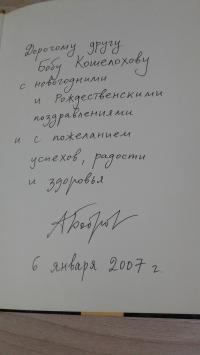 Дорогому другу
Бобу Кошелохову
с новогодними
и Рождественскими
поздравлениями
и с пожеланием
успехов, радости
и здоровья
АБобров
6 января 2007 г.